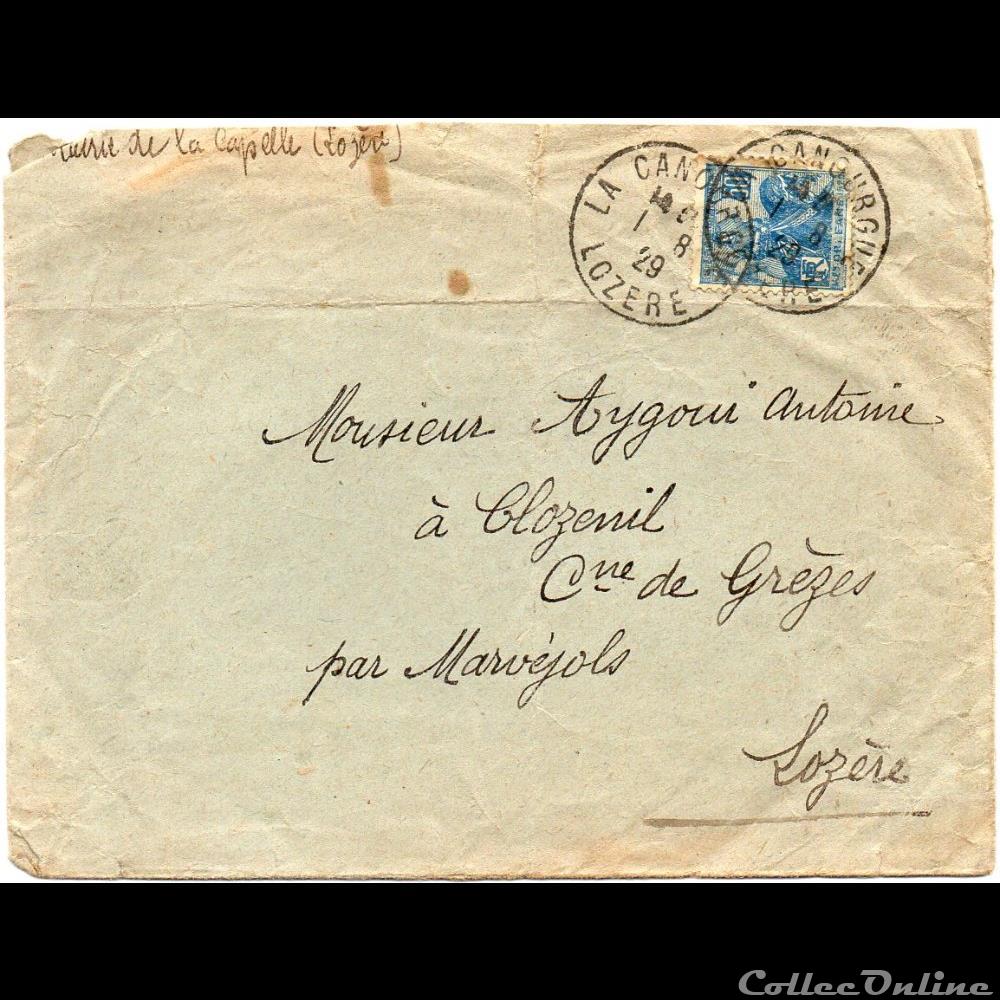 de la Capelle (Lozère)
LA CANOURGUE
1 8
29
LOZERE
CANOURGUE
1 8
29
50c
Monsieur Aygoui Antoine
à Clozenil
Cne de Grèzes
par Marvéjols
Lozère
ColleeOnline